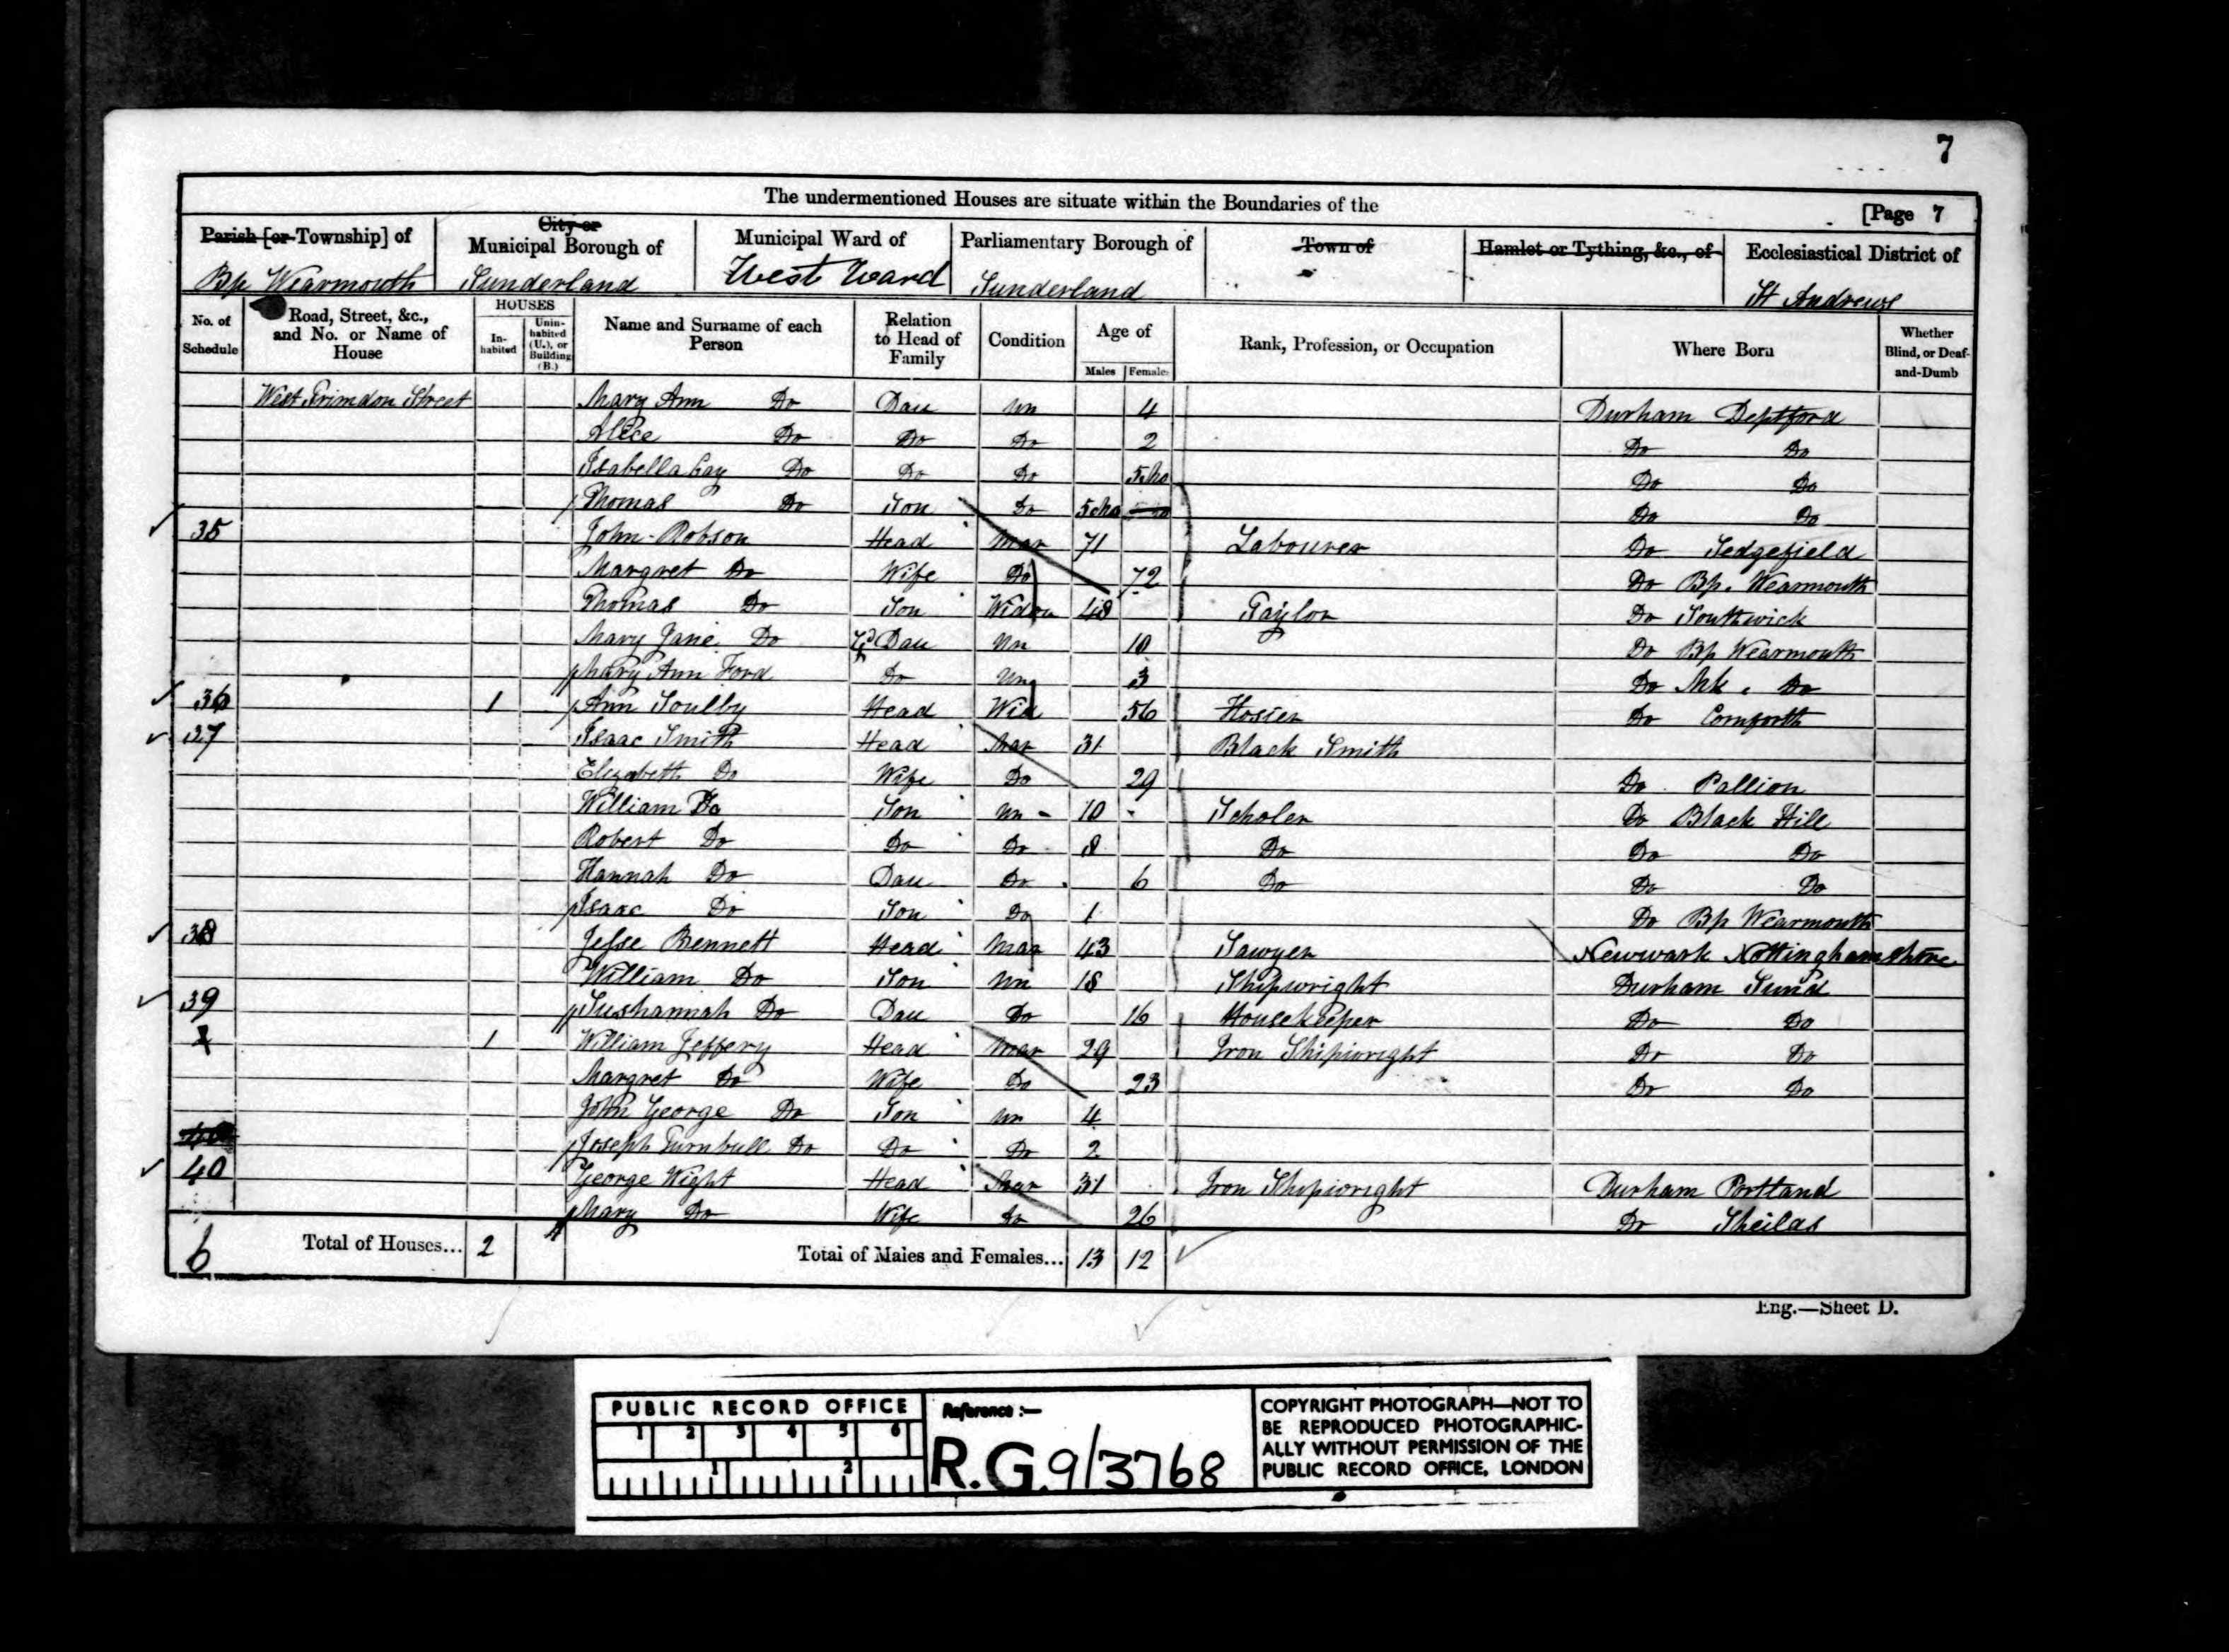 7
The undermentioned Houses are situate within the Boundaries of the
[Page 7
Parish [or Township] of
City or Municipal Borough of
Municipal Ward of
Parliamentary Borough of
Town of
Hamlet or Tything, &c., of
Ecclesiastical District of
Bp Wearmouth
Sunderland
West Ward
Sunderland
St Andrews
No. of Schedule
Road, Street, &c., and No. or Name of House
HOUSES
In-habited
Unin-habited (U.), or Building (B.)
Name and Surname of each Person
Relation to Head of Family
Condition
Age of
Males
Females
Rank, Profession, or Occupation
Where Born
Whether Blind, or Deaf-and-Dumb
West Street Mary Ann Do Dau Un 4 Durham Deptford
Alice Do Do Do 2 Do Do
Isabella Do Do Do 5 Mo Do Do
Thomas Do Son Do 5 Mo Do Do
35 John Robson Head Mar 71 Labourer Do Sedgefield
Margret Do Wife Do 72 Do Bp. Wearmouth
Thomas Do Son Widr 48 Taylor Do Southwick
Mary Jane Do Dau Un 10 Do Bp Wearmouth
Mary Ann Ford Do Un 3 Do Mk. Do
36 1 Ann Soulby Head Wid 56 Hosier Do Cornforth
37 Isaac Smith Head Mar 31 Black Smith
Elizabeth Do Wife Do 29 Do Pallion
William Do Son Un 10 Scholer Do Black Hill
Robert Do Do Do 8 Do Do Do
Hannah Do Dau Do 6 Do Do Do
Isaac Do Son Do 1 Do Bp Wearmouth
38 Jesse Bennett Head Mar 43 Sawyer Newwark Nottinghamshire
William Do Son Un 18 Shipwright Durham Sund
39 Sushannah Do Dau Do 16 Housekeeper Do Do
1 William Jeffery Head Mar 29 Iron Shipwright Do Do
Margret Do Wife Do 23 Do Do
John George Do Son Un 4
Joseph Turnbull Do Do Do 2
40 George Wight Head Mar 31 Iron Shipwright Durham Portland
Mary Do Wife Do 26 Do Sheilds
6 Total of Houses... 2 Total of Males and Females... 13 12
Eng.—Sheet D.
PUBLIC RECORD OFFICE
1 2 3 4 5 6
1 2
Reference :—
R.G. 9/3768
COPYRIGHT PHOTOGRAPH—NOT TO
BE REPRODUCED PHOTOGRAPHIC-
ALLY WITHOUT PERMISSION OF THE
PUBLIC RECORD OFFICE, LONDON